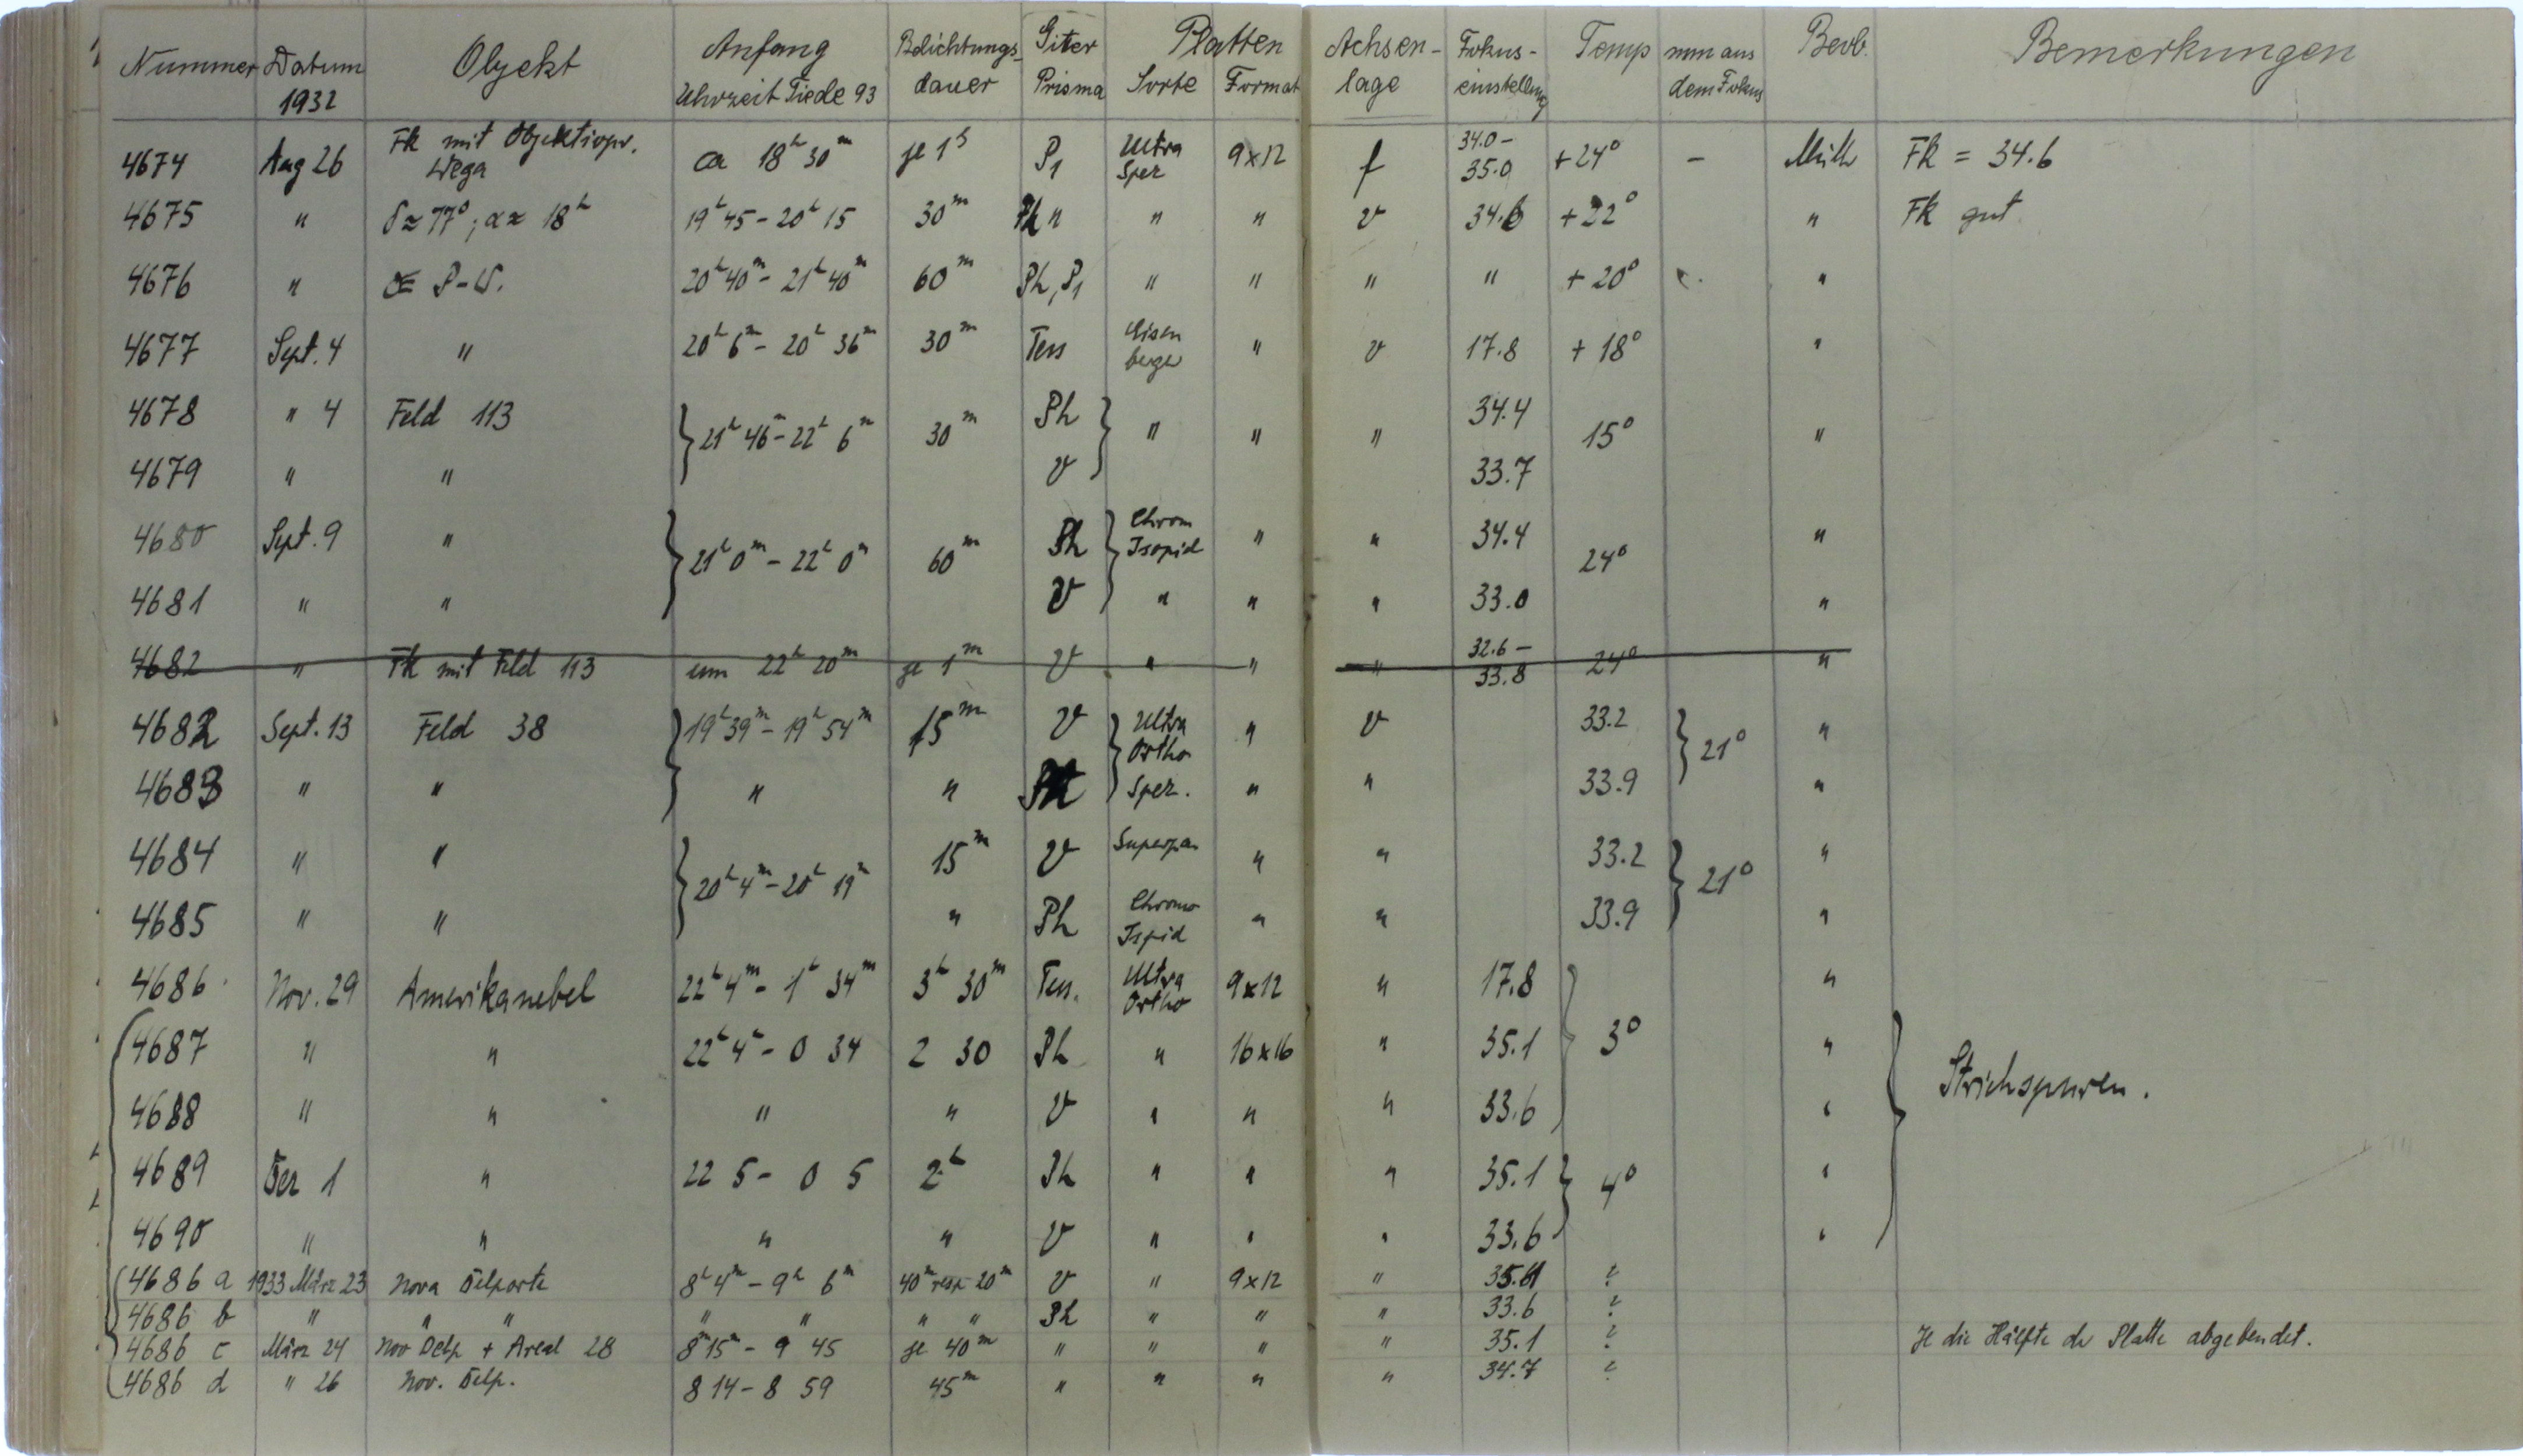 Nummer Datum 1932 Objekt Anfang Uhrzeit Tiede 93 Belichtungs-dauer Giter Prisma Platten Sorte Format Achsen-lage Fokus-einstellung Temp mm aus dem Fokus Beob. Bemerkungen
4674 Aug 26 Fk mit Objektivpr. Wega ca 18h 30m je 1s P1 Ultra Spez 9x12 f 34.0 - 35.0 +24° - Müller Fk = 34.6
4675 " δ≈77°; α≈ 18h 19h 45 - 20h 15 30m Ph " " " v 34.6 +22° " Fk gut
4676 " P-V. 20h 40m - 21h 40m 60m Ph, P1 " " " " +20° "
4677 Sept. 4 " 20h 6m - 20h 36m 30m Tess Eisen berger " v 17.8 +18° "
4678 " 4 Feld 113 } 21h 46m - 22h 6m 30m Ph } " " " 34.4 15° "
4679 " " v 33.7
4680 Sept. 9 " } 21h 0m - 22h 0m 60m Ph } Chrom Isopid " " 34.4 24° "
4681 " " v " " " 33.0 "
4682 " Fk mit Feld 113 um 22h 20m je 1m v " " " 32.6 - 33.8 24° "
4682 Sept. 13 Feld 38 } 19h 39m - 19h 54m 15m v } Ultra Ortho " v 33.2 } 21° "
4683 " " " " Ph Spez. " " 33.9 "
4684 " " } 20h 4m - 20h 19m 15m v Superpan " " 33.2 } 21° "
4685 " " " Ph Chromo Ispid " " 33.9 "
4686 Nov. 29 Amerikanebel 22h 4m - 1h 34m 3h 30m Tess. Ultra Ortho 9x12 " 17.8 } 3° "
4687 " " 22h 4m - 0 34 2 30 Ph " 16x16 " 35.1 " } Strichspuren.
4688 " " " " v " " " 33.6 "
4689 Dez 1 " 22 5 - 0 5 2h Ph " " " 35.1 } 4° "
4690 " " " " v " " " 33.6 "
4686 a 1933 März 23 Nova Delporte 8h 4m - 9h 6m 40m resp 20m v " 9x12 " ?
4686 b " " " " " " " Ph " " " 33.6 ?
4686 c März 24 Nov Delp + Areal 28 8h 15m - 9 45 je 40m " " " " 35.1 ? Je die Hälfte der Platte abgebendet.
4686 d " 26 Nov. Delp. 8 14 - 8 59 45m " " " " 34.7 ?